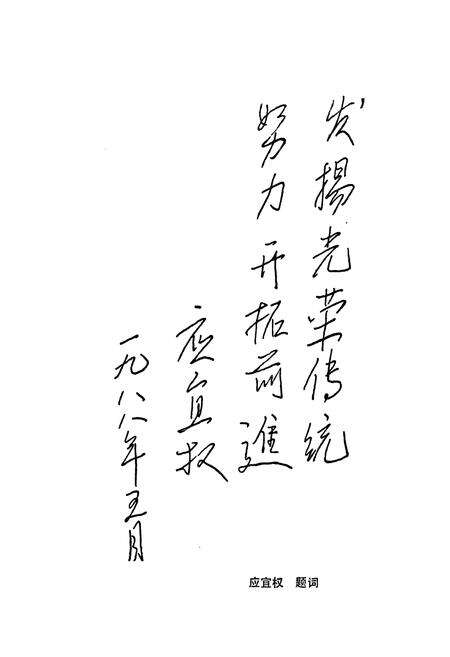 发揚光荣傳统
努力开拓前進
应宜权
一九八八年五月
应宜权 题词